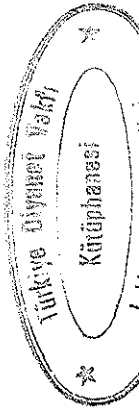 Türkiye Diyanet Vakfı
Kütüphanesi